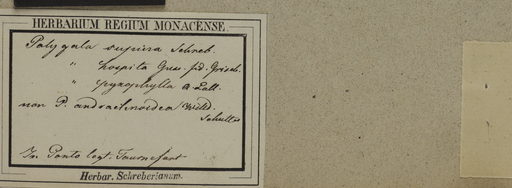 HERBARIUM REGIUM MONACENSE.
Polygala supina Schreb.
" hospita Gus. fid. Griseb.
" pyxophylla a Lall.
non P. andrachnoidea Willd.
Schult
In Ponto legt. Tournefort
Herbar. Schreberianum.